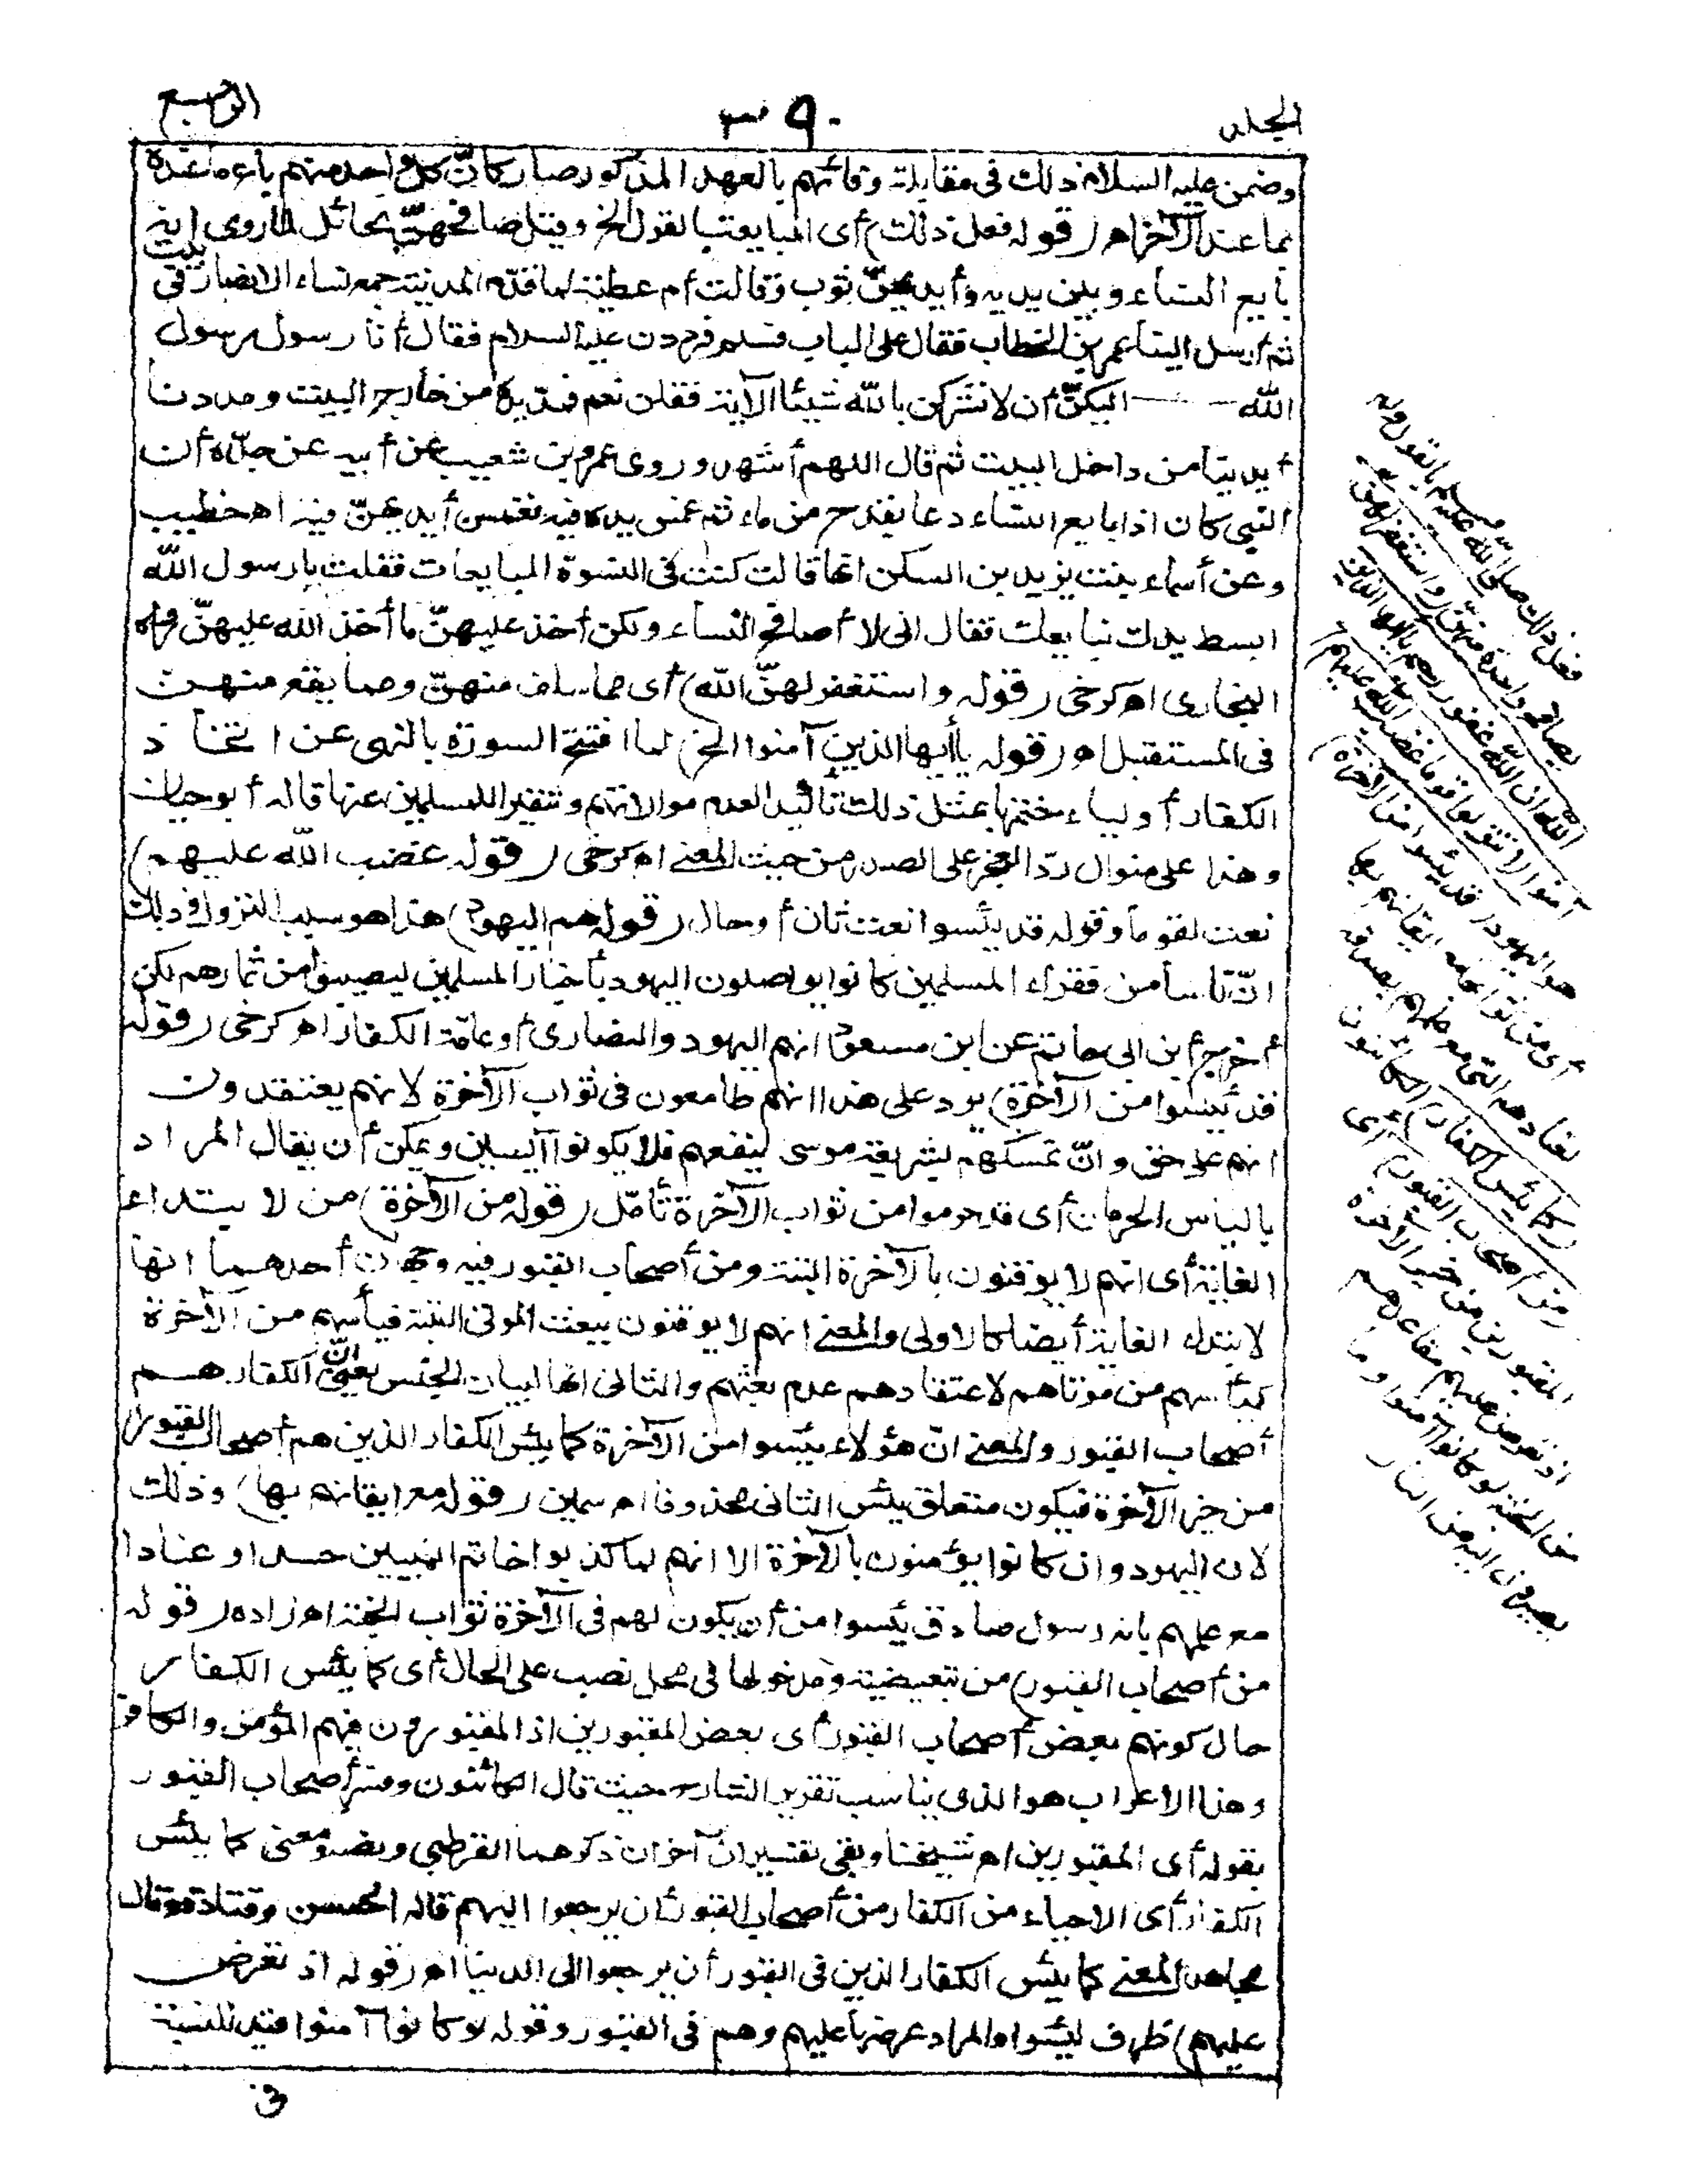 الجلد
٣٩٠
الرابع
وضمن عليه السلام ذلك فى مقابلة وفائهم بالعهد المذكور صار كأنّ كل واحد منهم باع ما عنده
بما عند الآخر اه (قوله فعل ذلك) أى المبايعة بالقول الخ وقيل صافحهنّ بحائل لما روى انه
بايع النساء وبين يديه وأيديهنّ ثوب وقالت أم عطية لما قدم المدينة جمع نساء الانصار فى بيت
ثم أرسل الينا عمر بن الخطاب فقال على الباب فسلم فرددن عليه السلام فقال أنا رسول رسول
الله اليكنّ أن لا تشركن بالله شيئا الآية فقلن نعم فمد يده من خارج البيت ومددنا
أيدينا من داخل البيت ثم قال اللهم أشهد وروى عمرو بن شعيب عن أبيه عن جدّه أن
النبى كان اذا بايع النساء دعا بقدح من ماء ثم غمس يده فيه فغمسن أيديهنّ فيه اه خطيب
وعن أسماء بنت يزيد بن السكن انها قالت كنت فى النسوة المبايعات فقلت يا رسول الله
ابسط يدك نبايعك فقال انى لا أصافح النساء ولكن أخذ عليهنّ ما أخذ الله عليهنّ رواه
البخارى اه كرخى (قوله واستغفر لهنّ الله) أى مما سلف منهنّ ومما يقع منهن
فى المستقبل اه (قوله يا أيها الذين آمنوا الخ) لما افتتح السورة بالنهى عن اتخاذ
الكفار أولياء ختمها بمثل ذلك تأكيدا لعدم موالاتهم وتنفيرا للمسلمين عنها قاله أبو حيان
وهذا على منوال ردّ العجز على الصدر من حيث المعنى اه كرخى (قوله غضب الله عليهم)
نعت لقوما وقوله قد يئسوا نعت ثان أو حال (قوله هم اليهود) هذا هو سبب النزول وذلك
انّ ناسا من فقراء المسلمين كانوا يواصلون اليهود بأخبار المسلمين ليصيبوا من ثمارهم لكن
أخرج أبن ابى حاتم عن ابن مسعود انهم اليهود والنصارى أو عامّة الكفار اه كرخى (قوله
قد يئسوا من الآخرة) يرد على هذا انهم طامعون فى ثواب الآخرة لانهم يعتقدون
انهم على حق وانّ تمسكهم بشريعة موسى ينفعهم فلا يكونوا آيسين ويمكن أن يقال المراد
بالياس الحرمان أى قد حرموا من ثواب الآخرة تأمّل (قوله من الآخرة) من لابتداء
الغاية أى انهم لا يوقنون بالآخرة البتة ومن أصحاب القبور فيه وجهان أحدهما انها
لابتداء الغاية أيضا كالاولى والمعنى انهم لا يوقنون ببعث الموتى البتة فيأسهم من الآخرة
كيأسهم من موتاهم لاعتقادهم عدم بعثهم والثانى انها لبيان الجنس يعنى انّ الكفار هم
أصحاب القبور والمعنى انّ هؤلاء يئسوا من الآخرة كما يئس الكفار الذين هم أصحاب القبور
من خير الآخرة فيكون متعلق يئس الثانى محذوفا اه سمين (قوله مع ايقانهم بها) وذلك
لان اليهود وان كانوا يؤمنون بالآخرة الا انهم لما كذبوا خاتم النبيين حسدا وعنادا
مع علمهم بانه رسول صادق يئسوا من أن يكون لهم فى الآخرة ثواب الجنة اه زاده (قوله
من أصحاب القبور) من تبعيضية ومدخولها فى محل نصب على الحال أى كما يئس الكفار
حال كونهم بعض أصحاب القبور أى بعض المقبورين اذ المقبورون فيهم المؤمن والكافر
وهذا الاعراب هو الذى يناسب تقرير الشارح حيث قال الكائنون وفسر أصحاب القبور
بقوله أى المقبورين اه شيخنا وبقى تفسيران آخران ذكرهما القرطبى ونصه ومعنى كما يئس
الكفار أى الاحياء من الكفار من أصحاب القبور أن يرجعوا اليهم قاله الحسن وقتادة وقال
مجاهد المعنى كما يئس الكفار الذين فى القبور أن يرجعوا الى الدنيا اه (قوله اذ تعرض
عليهم) ظرف ليئسوا والمراد عرضها عليهم وهم فى القبور وقوله لو كانوا آمنوا قيد للنسبة
فى
فعل ذلك صلى الله عليه وسلم بالقول ولم
يصافح واحدة منهنّ (واستغفر لهنّ
الله ان الله غفور رحيم يا أيها الذين
آمنوا لا تتولوا قوما غضب الله عليهم)
هم اليهود (قد يئسوا من الآخرة)
أى من ثوابها مع ايقانهم بها
لعنادهم النبى مع علمهم بصدقه
(كما يئس الكفار) الكائنون
(من أصحاب القبور) أى
المقبورين من خير الآخرة
اذ تعرض عليهم مقاعدهم
من الجنة لو كانوا آمنوا وما
يصيرون اليه من النار